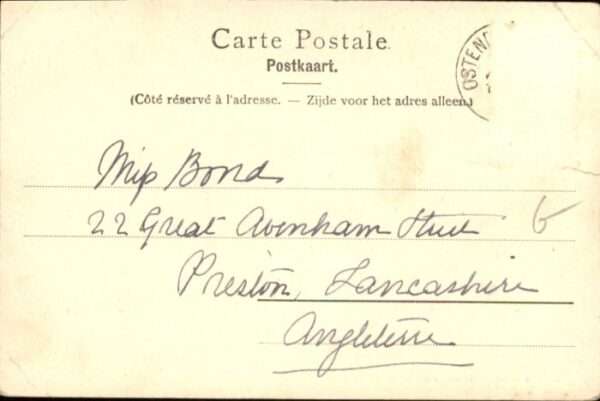 Carte Postale.
Postkaart.
(Côté réservé à l'adresse. — Zijde voor het adres alleen.)
OSTEND
Miss Bond
22 Great Avenham Street
Preston, Lancashire
Angleterre